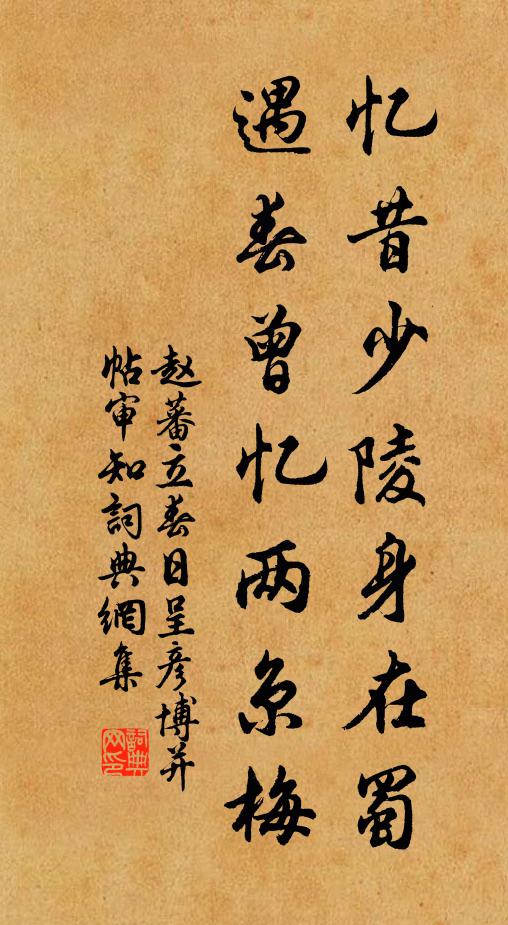 忆昔少陵身在蜀
遇春曾忆两京梅
赵蕃立春日呈彦博并
帖审知詞典網集
詞典網印